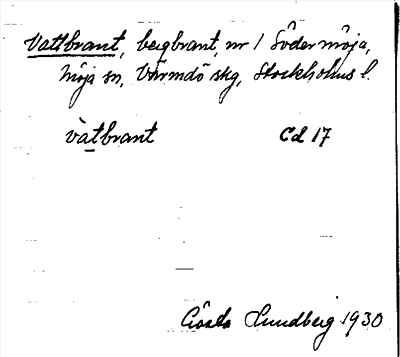 Vattbrant, bergbrant, nr 1 Södermöja,
Möja sn, Värmdö skg, Stockholms l.
vàtbrant Cd 17
Gösta Lundberg 1930